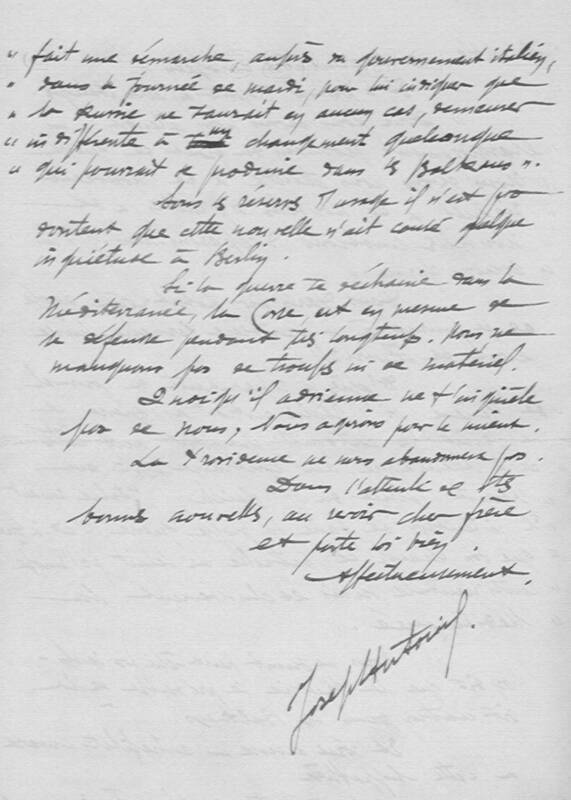 " fait une démarche, auprès du gouvernement italien,
" dans la journée de mardi, pour lui indiquer que
" la Russie ne saurait en aucun cas, demeurer
" indifférente à un changement quelconque
" qui pourrait se produire dans les Balkans ".
Sous les réserves d'usage il n'est pas
douteux que cette nouvelle n'ait causé quelque
inquiétude à Berlin.
Si la guerre se déchaine dans la
Méditerranée, la Corse est en mesure de
se défendre pendant très longtemps. Nous ne
manquons pas de troupes ni de matériel.
Quoiqu'il advienne ne t'inquiète
pas de nous, Nous agirons pour le mieux.
La Providence ne nous abandonnera pas.
Dans l'attente de tes
bonnes nouvelles, au revoir cher frère
et porte toi bien.
Affectueusement.
Joseph Antoine.